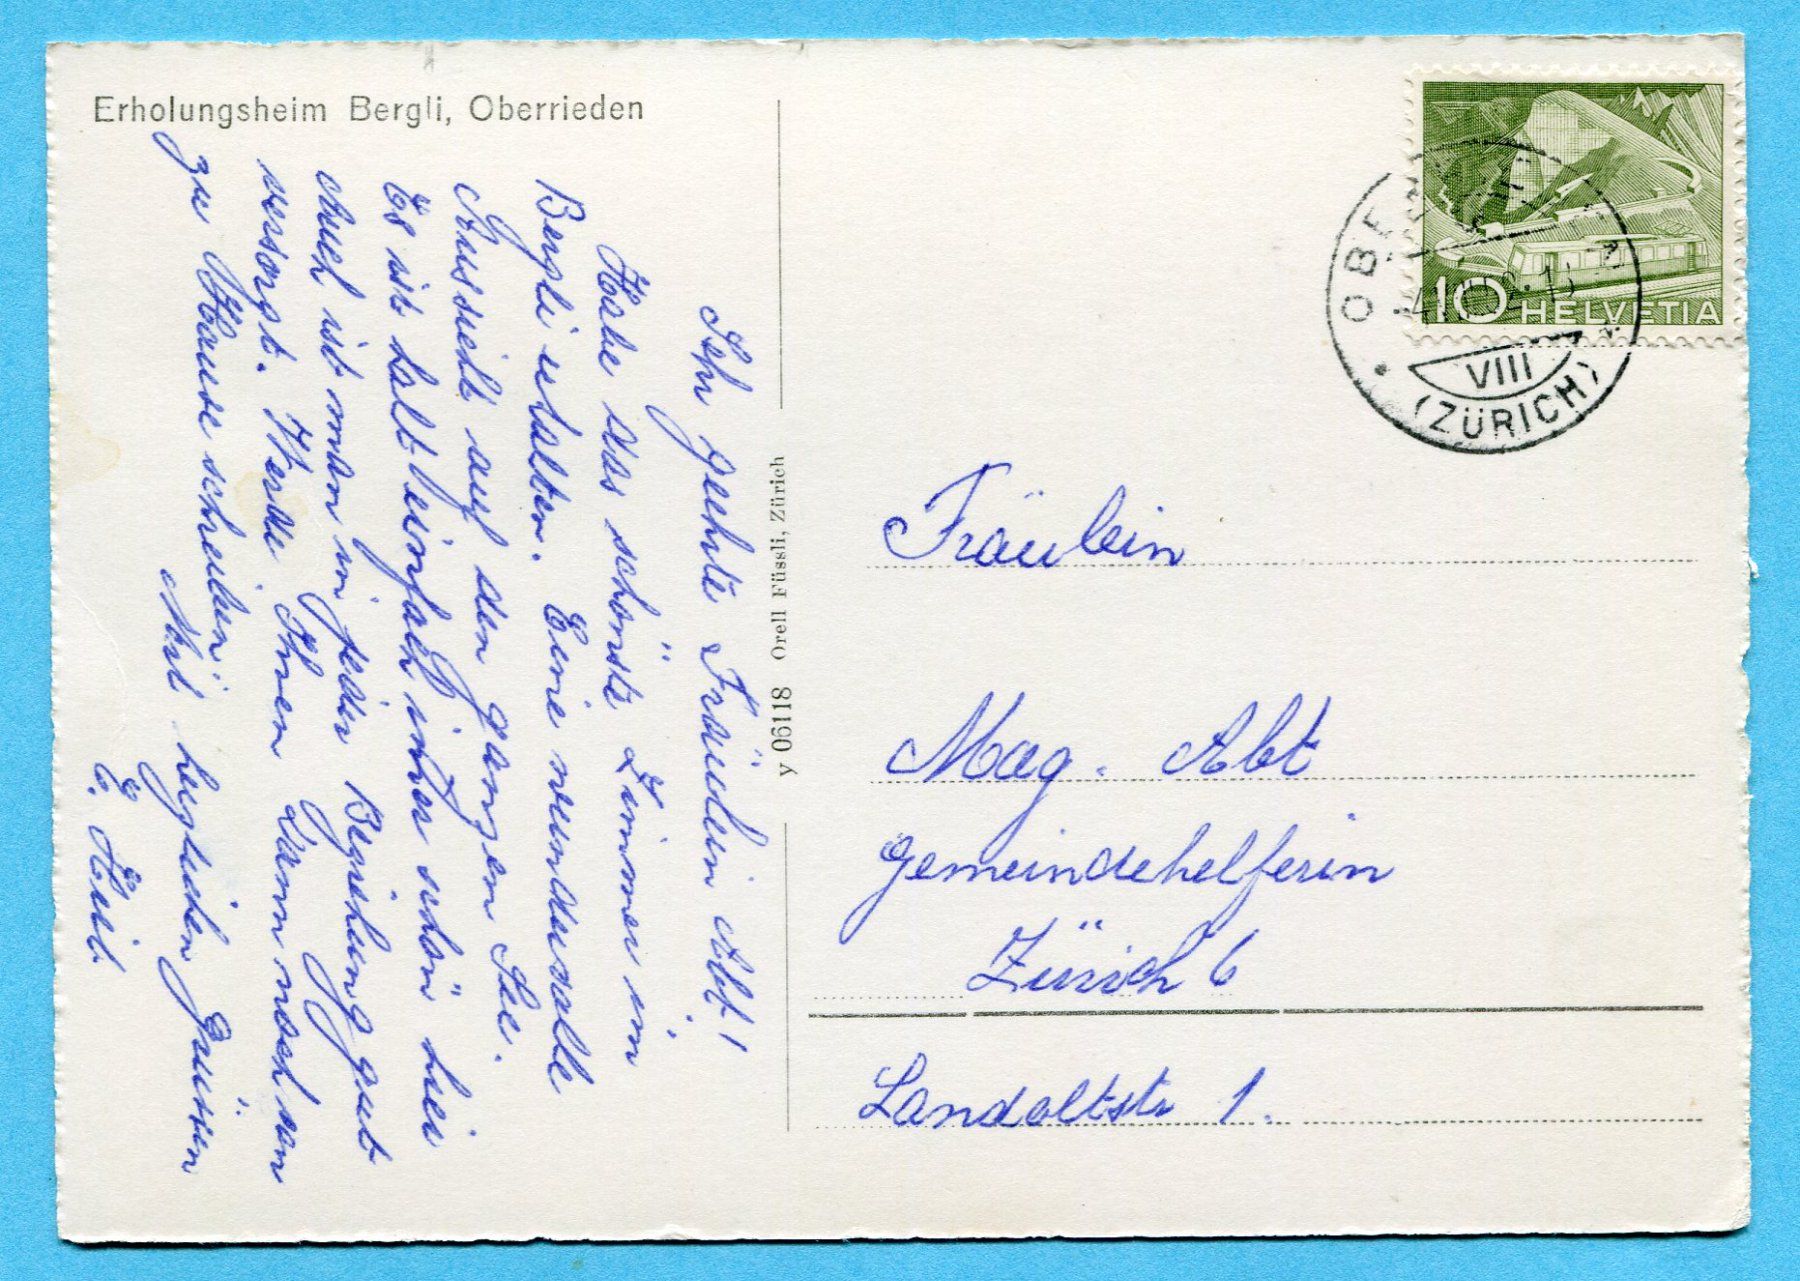 Erholungsheim Bergli, Oberrieden
Sehr geehrte Fräulein Abt!
Habe das schönste Zimmer im
Bergli erhalten. Eine wundervolle
Aussicht auf den ganzen See.
Es ist halt einfach schön hier
Auch ist man in jeder Beziehung gut
versorgt. Werde Ihnen dann noch von
zu Hause schreiben
Mit herzlichen Grüssen
E.
y 06118 Orell Füssli, Zürich
10 HELVETIA
VIII
(ZÜRICH)
Fräulein
Mag. Abt
Gemeindehelferin
Zürich 6
Landoltstr 1.